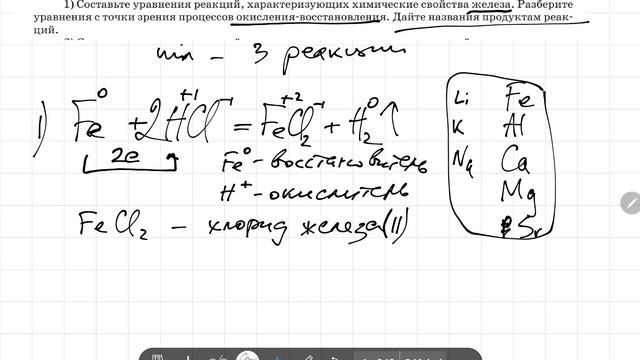 1) Составьте уравнения реакций, характеризующих химические свойства железа. Разберите
уравнения с точки зрения процессов окисления-восстановления. Дайте названия продуктам реак-
ций.
min – 3 реакции
1) Fe⁰ + 2H⁺¹Cl⁻¹ = Fe⁺²Cl₂⁻¹ + H₂⁰↑
2e
Fe⁰ - восстановитель
H⁺ - окислитель
FeCl₂ – хлорид железа (II)
Li Fe
K Al
Na Ca
Mg
Sr